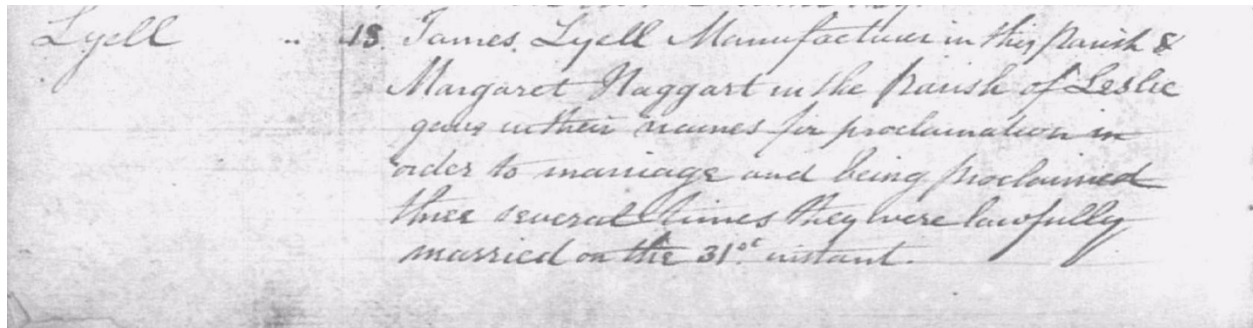 Lyell .. 18. James Lyell Manufacturer in this Parish &
Margaret Haggart in the Parish of Leslie
gave in their names for proclamation in
order to marriage and being proclaimed
three several times they were lawfully
married on the 31st instant.